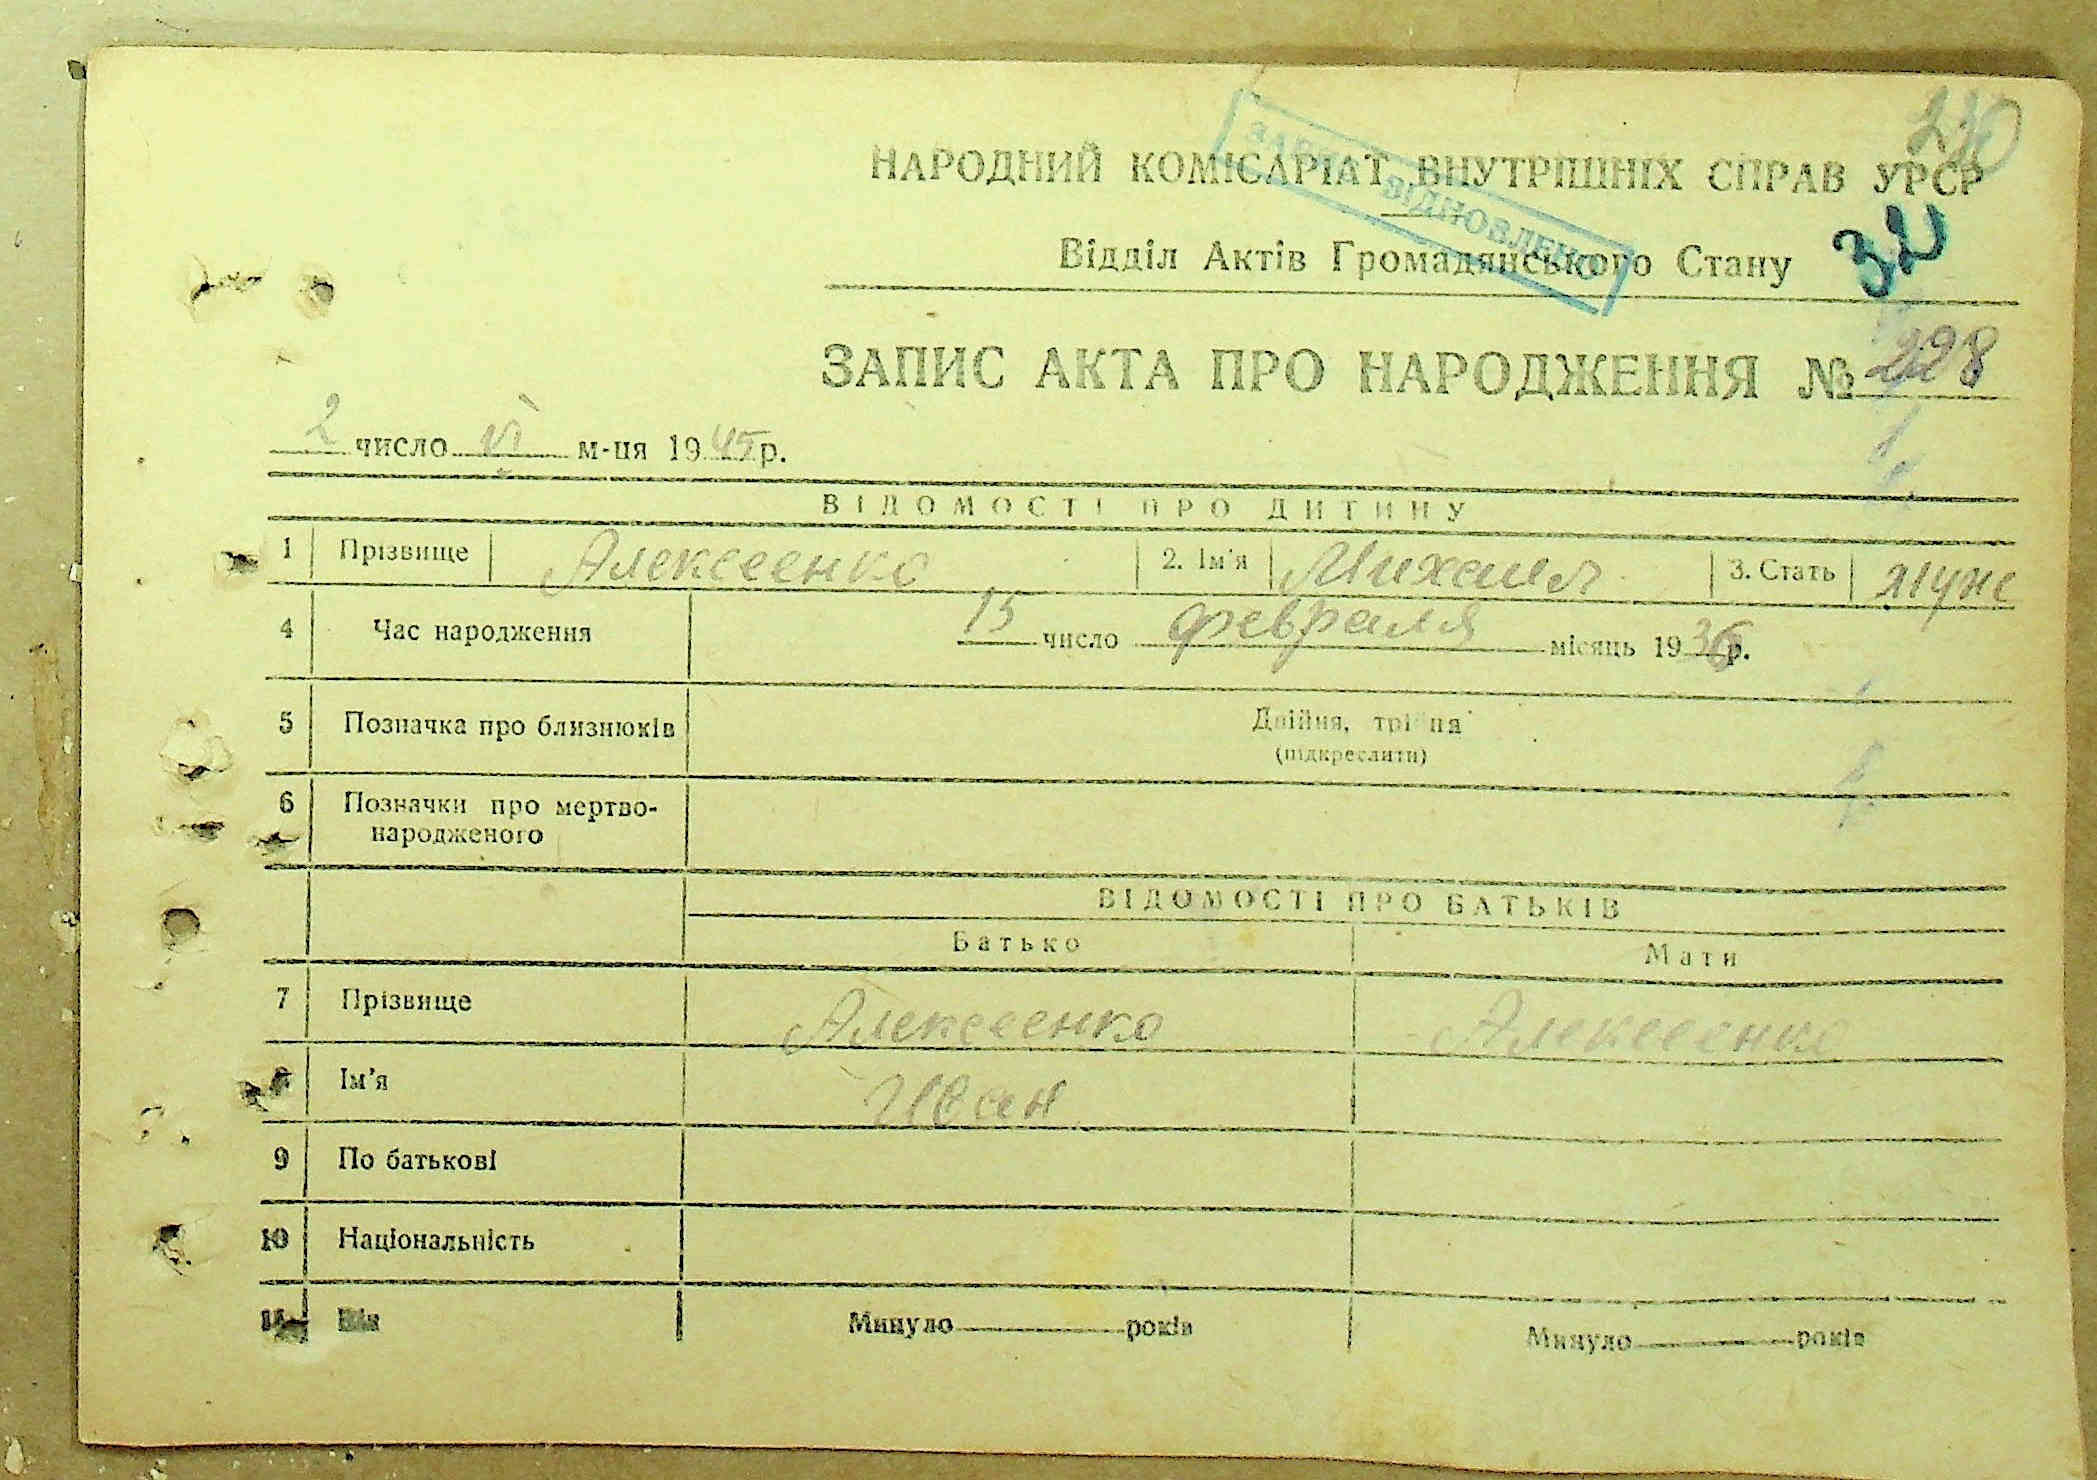 230
НАРОДНИЙ КОМІСАРІАТ ВНУТРІШНІХ СПРАВ УРСР
ВІДНОВЛЕНО
Відділ Актів Громадянського Стану 32
ЗАПИС АКТА ПРО НАРОДЖЕННЯ № 228
2 число VI м-ця 1945 р.
ВІДОМОСТІ ПРО ДИТИНУ
1 Прізвище Алексеенко 2. Ім'я Михаил 3. Стать муж
4 Час народження 15 число февраля місяць 1936 р.
5 Позначка про близнюків Двійня, трійня
(підкреслити)
6 Позначки про мертво-
народженого
ВІДОМОСТІ ПРО БАТЬКІВ
Батько Мати
7 Прізвище Алексеенко Алексеенко
8 Ім'я Иван
9 По батькові
10 Національність
11 Вік Минуло років Минуло років